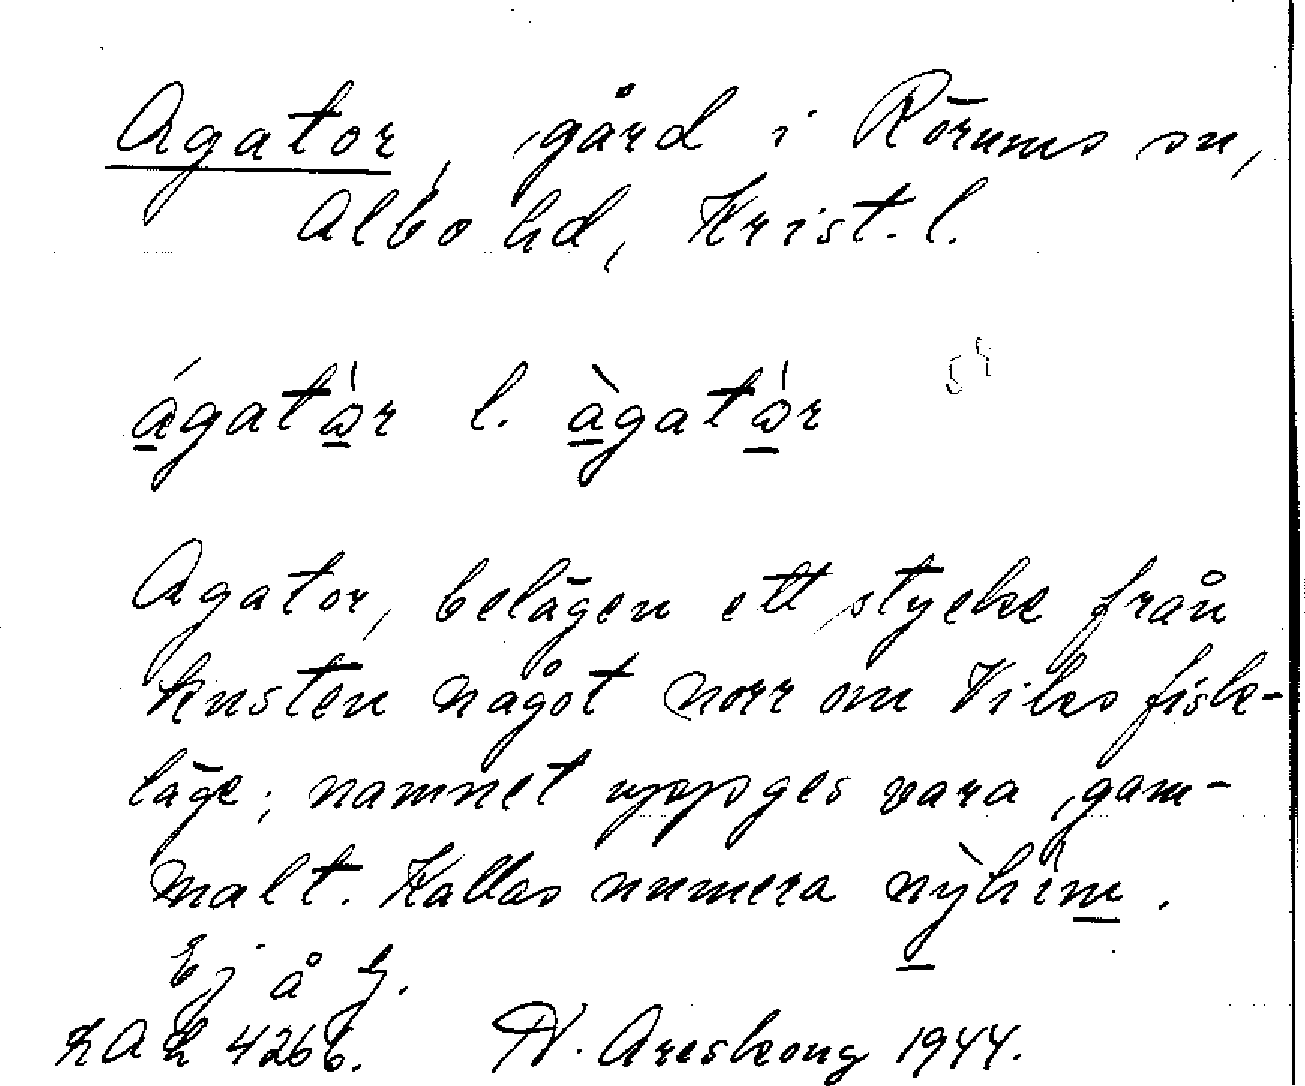 Agator, gård i Rörums sn,
Albo hd, Krist. l.
ágatòr l. àgatór
Agator, belägen ett stycke från
kusten något norr om Viks fisk-
läge; namnet uppges vara gam-
malt. Kallas numera nỳhím.
Ej å G.
RAÄ 4266. N. Areskoug 1944.